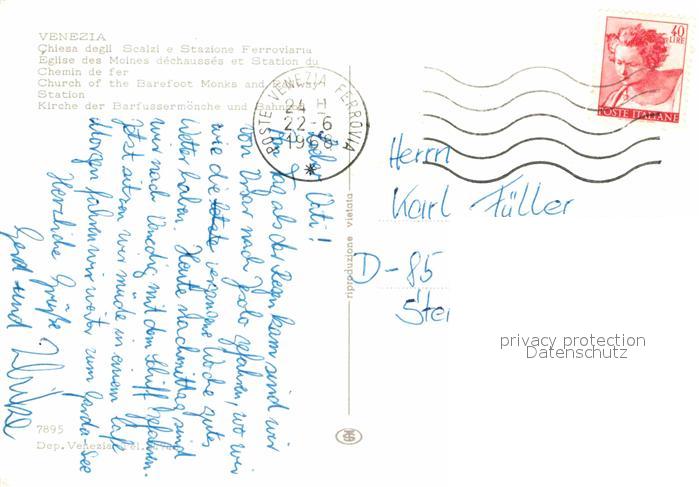 VENEZIA
Chiesa degli Scalzi e Stazione Ferroviaria
Église des Moines déchaussés et Station du
Chemin de fer
Church of the Barefoot Monks and Railway
Station
Kirche der Barfussermönche und Bahnhof
POSTE VENEZIA FERROVIA
24 H
22-6
1968
40
LIRE
POSTE ITALIANE
Lieber Vati!
Am Tag als der Regen kam sind wir
von Urlar nach Jesolo gefahren, wo wir
wie die letzte vergangene Woche gutes
Wetter haben. Heute Nachmittag sind
wir nach Venedig mit dem Schiff gefahren.
Jetzt sitzen wir müde in einem Café
Morgen fahren wir weiter zum Garda-See
Herzliche Grüße
Gerd und
riproduzione vietata
Herrn
Karl Füller
D-85
Stei
privacy protection
Datenschutz
7895
Dep. Venezia